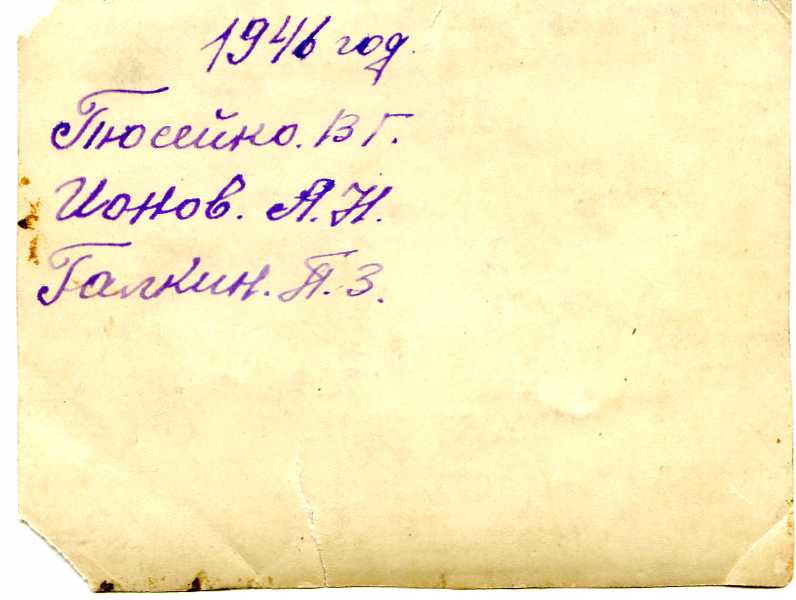 1946 год.
Пюсейко. В Г.
Ионов. А. Н.
Галкин. П. З.